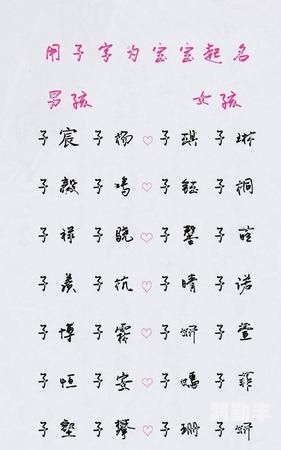 用子字为宝宝起名
男孩 女孩
子宸 子杨 ♡ 子琪 子琳
子毅 子鸣 ♡ 子钰 子桐
子祥 子骁 ♡ 子馨 子萱
子羡 子杭 ♡ 子晴 子诺
子博 子霖 ♡ 子妍 子萱
子恒 子安 ♡ 子嫣 子菲
子塾 子攀 ♡ 子珊 子妍